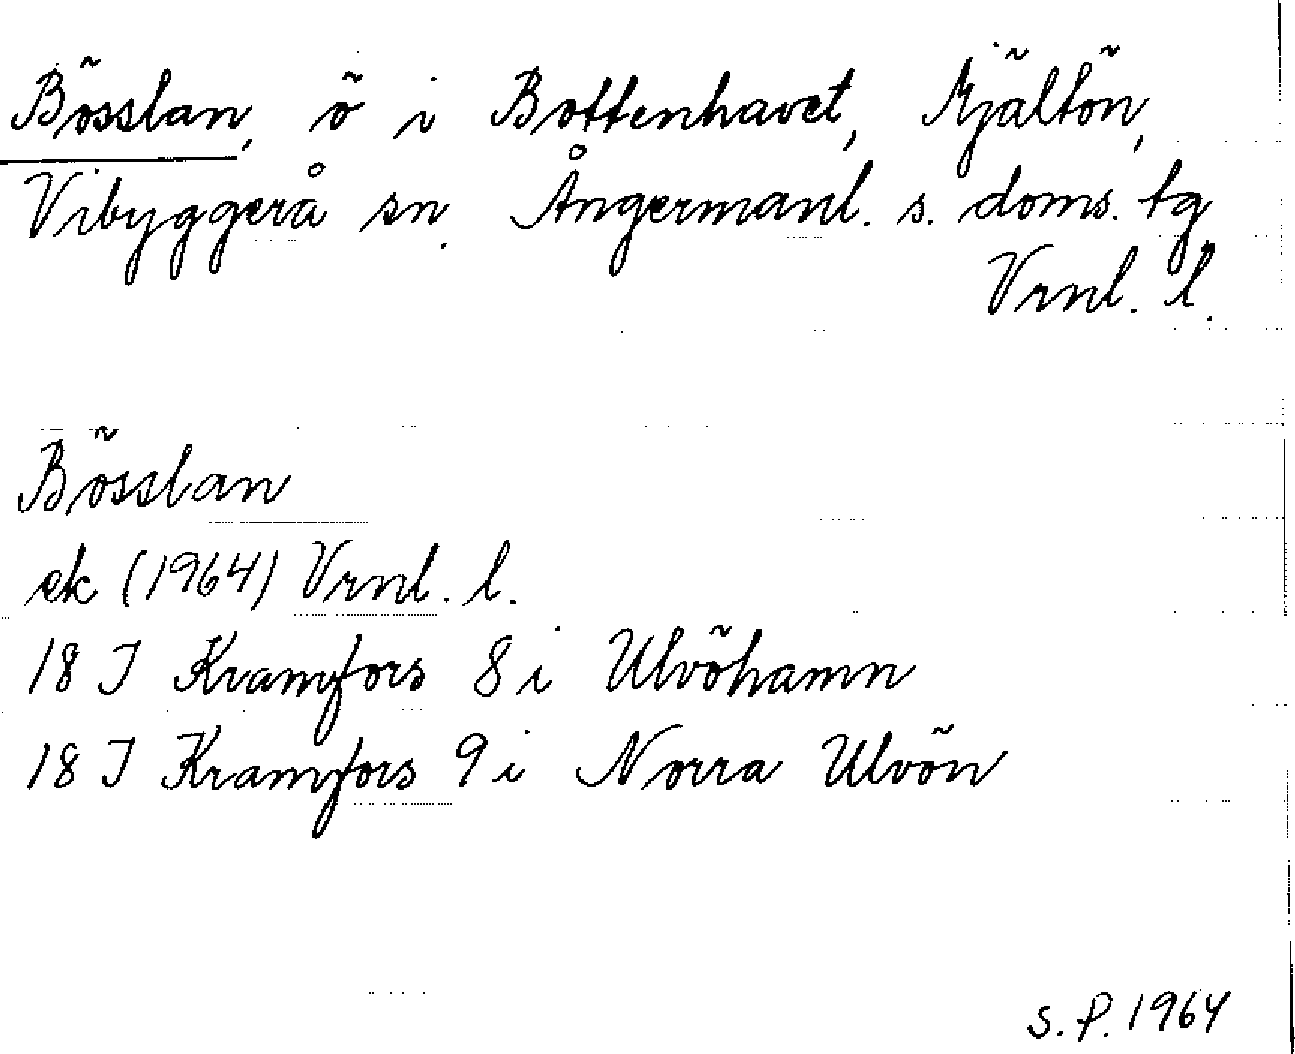 Bösslan, ö i Bottenhavet, Mjältön,
Vibyggerå sn. Ångermanl. s. doms. tg
Vrnl. l.
Bösslan
ek (1964) Vrnl. l.
18 I Kramfors 8 i Ulvöhamn
18 I Kramfors 9 i Norra Ulvön
S. P. 1964